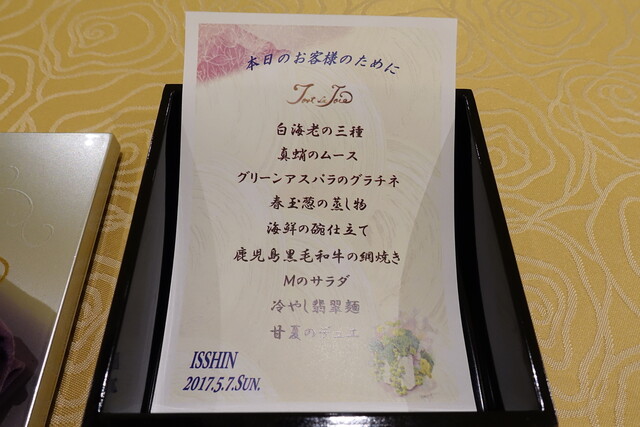 本日のお客様のために
Tout de Joie
白海老の三種
真蛸のムース
グリーンアスパラのグラチネ
春玉葱の蒸し物
海鮮の碗仕立て
鹿児島黒毛和牛の網焼き
Mのサラダ
冷やし翡翠麺
甘夏のデュエ
ISSHIN
2017.5.7.SUN.